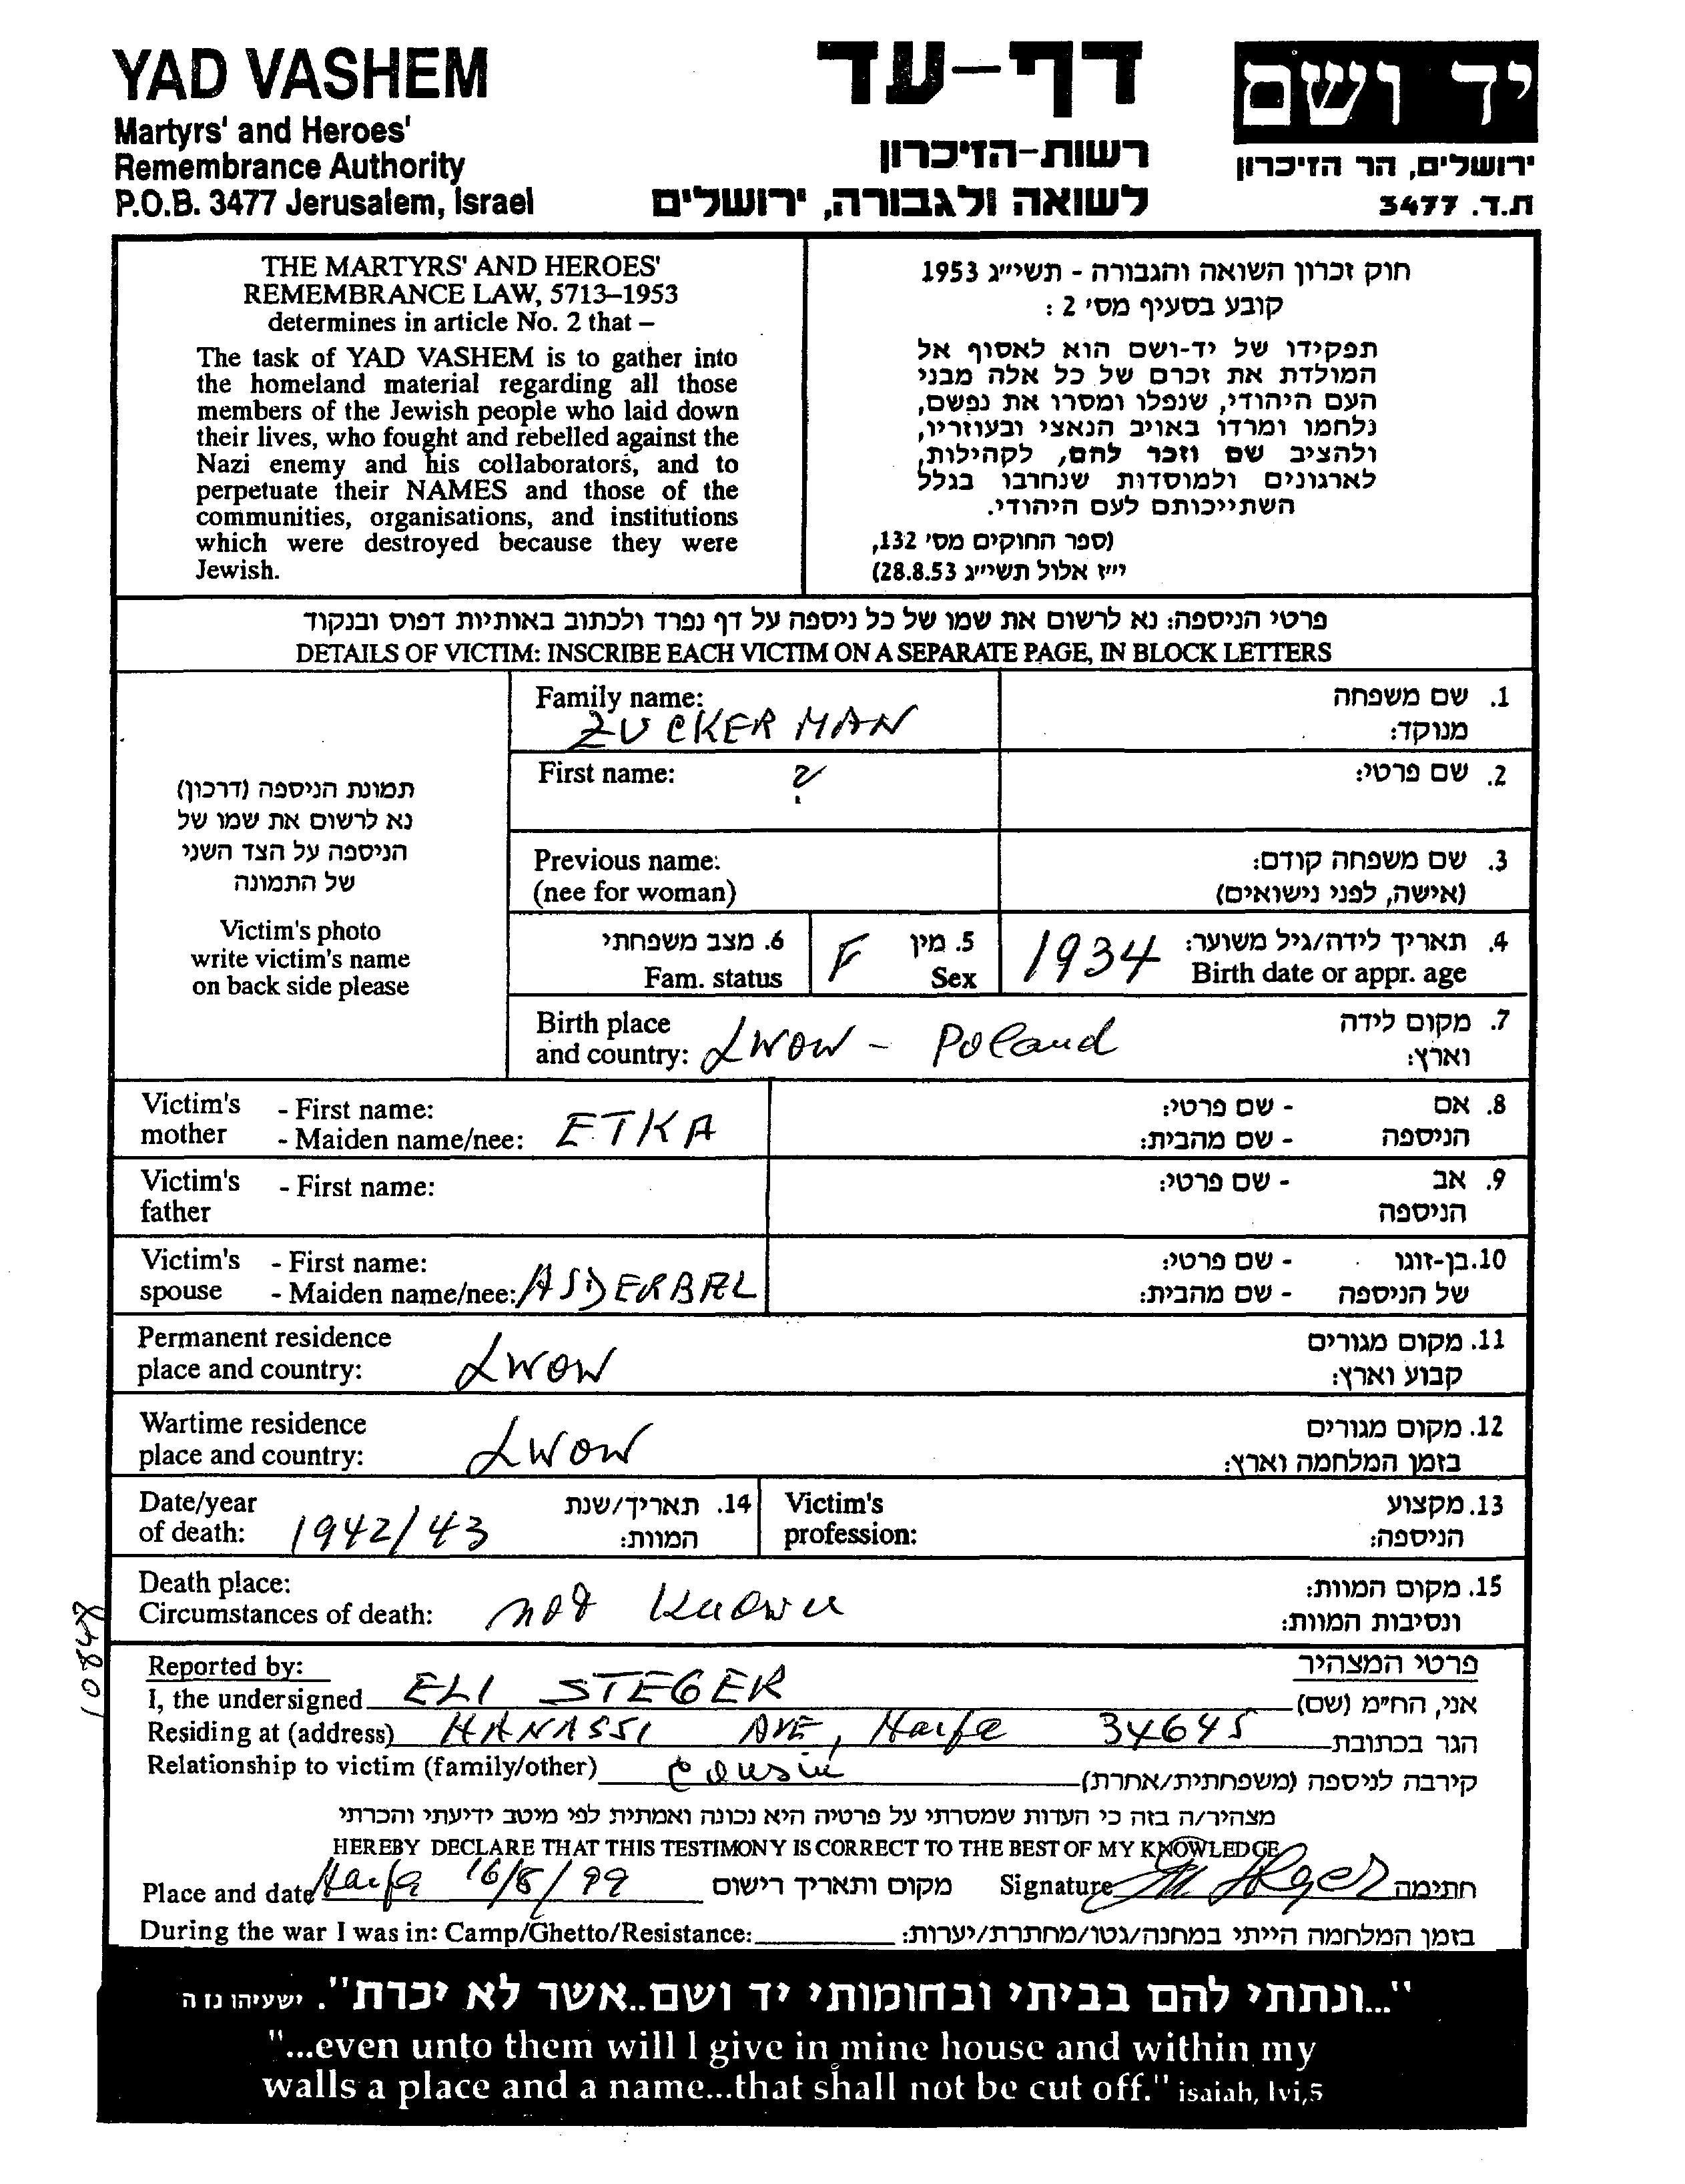 YAD VASHEM
Martyrs' and Heroes'
Remembrance Authority
P.O.B. 3477 Jerusalem, Israel
דף-עד
רשות-הזיכרון
לשואה ולגבורה, ירושלים
יד ושם
ירושלים, הר הזיכרון
ת.ד. 3477
THE MARTYRS' AND HEROES'
REMEMBRANCE LAW, 5713–1953
determines in article No. 2 that –
The task of YAD VASHEM is to gather into
the homeland material regarding all those
members of the Jewish people who laid down
their lives, who fought and rebelled against the
Nazi enemy and his collaborators, and to
perpetuate their NAMES and those of the
communities, organisations, and institutions
which were destroyed because they were
Jewish.
חוק זכרון השואה והגבורה - תשי״ג 1953
קובע בסעיף מס׳ 2 :
תפקידו של יד-ושם הוא לאסוף אל
המולדת את זכרם של כל אלה מבני
העם היהודי, שנפלו ומסרו את נפשם,
נלחמו ומרדו באויב הנאצי ובעוזריו,
ולהציב שם וזכר להם, לקהילות,
לארגונים ולמוסדות שנחרבו בגלל
השתייכותם לעם היהודי.
(ספר החוקים מס׳ 132,
י״ז אלול תשי״ג 28.8.53)
פרטי הניספה: נא לרשום את שמו של כל ניספה על דף נפרד ולכתוב באותיות דפוס ובנקוד
DETAILS OF VICTIM: INSCRIBE EACH VICTIM ON A SEPARATE PAGE, IN BLOCK LETTERS
תמונת הניספה (דרכון)
נא לרשום את שמו של
הניספה על הצד השני
של התמונה
Victim's photo
write victim's name
on back side please
Family name: 1. שם משפחה
ZUCKERMAN מנוקד:
First name: ? 2. שם פרטי:
Previous name: 3. שם משפחה קודם:
(nee for woman) (אישה, לפני נישואים)
6. מצב משפחתי F 5. מין 1934 4. תאריך לידה/גיל משוער:
Fam. status Sex Birth date or appr. age
Birth place 7. מקום לידה
and country: LWOW - Poland וארץ:
Victim's - First name: - שם פרטי: 8. אם
mother - Maiden name/nee: ETKA - שם מהבית: הניספה
Victim's - First name: - שם פרטי: 9. אב
father הניספה
Victim's - First name: - שם פרטי: 10. בן-זוגו
spouse - Maiden name/nee: ASDERBAL - שם מהבית: של הניספה
Permanent residence 11. מקום מגורים
place and country: LWOW קבוע וארץ:
Wartime residence 12. מקום מגורים
place and country: LWOW בזמן המלחמה וארץ:
Date/year 14. תאריך/שנת Victim's 13. מקצוע
of death: 1942/43 המוות: profession: הניספה:
Death place: 15. מקום המוות:
Circumstances of death: not known ונסיבות המוות:
Reported by: פרטי המצהיר
I, the undersigned ELI STEGER אני, הח״מ (שם)
Residing at (address) HANASSI AVE, Haifa 34645 הגר בכתובת
Relationship to victim (family/other) cousin קירבה לניספה (משפחתית/אחרת)
מצהיר/ה בזה כי העדות שמסרתי על פרטיה היא נכונה ואמתית לפי מיטב ידיעתי והכרתי
HEREBY DECLARE THAT THIS TESTIMONY IS CORRECT TO THE BEST OF MY KNOWLEDGE
Place and date Haifa 16/8/99 מקום ותאריך רישום Signature חתימה
During the war I was in: Camp/Ghetto/Resistance: בזמן המלחמה הייתי במחנה/גטו/מחתרת/יערות:
"...ונתתי להם בביתי ובחומותי יד ושם..אשר לא יכרת". ישעיהו נז ה
"...even unto them will I give in mine house and within my
walls a place and a name...that shall not be cut off." isaiah, lvi,5